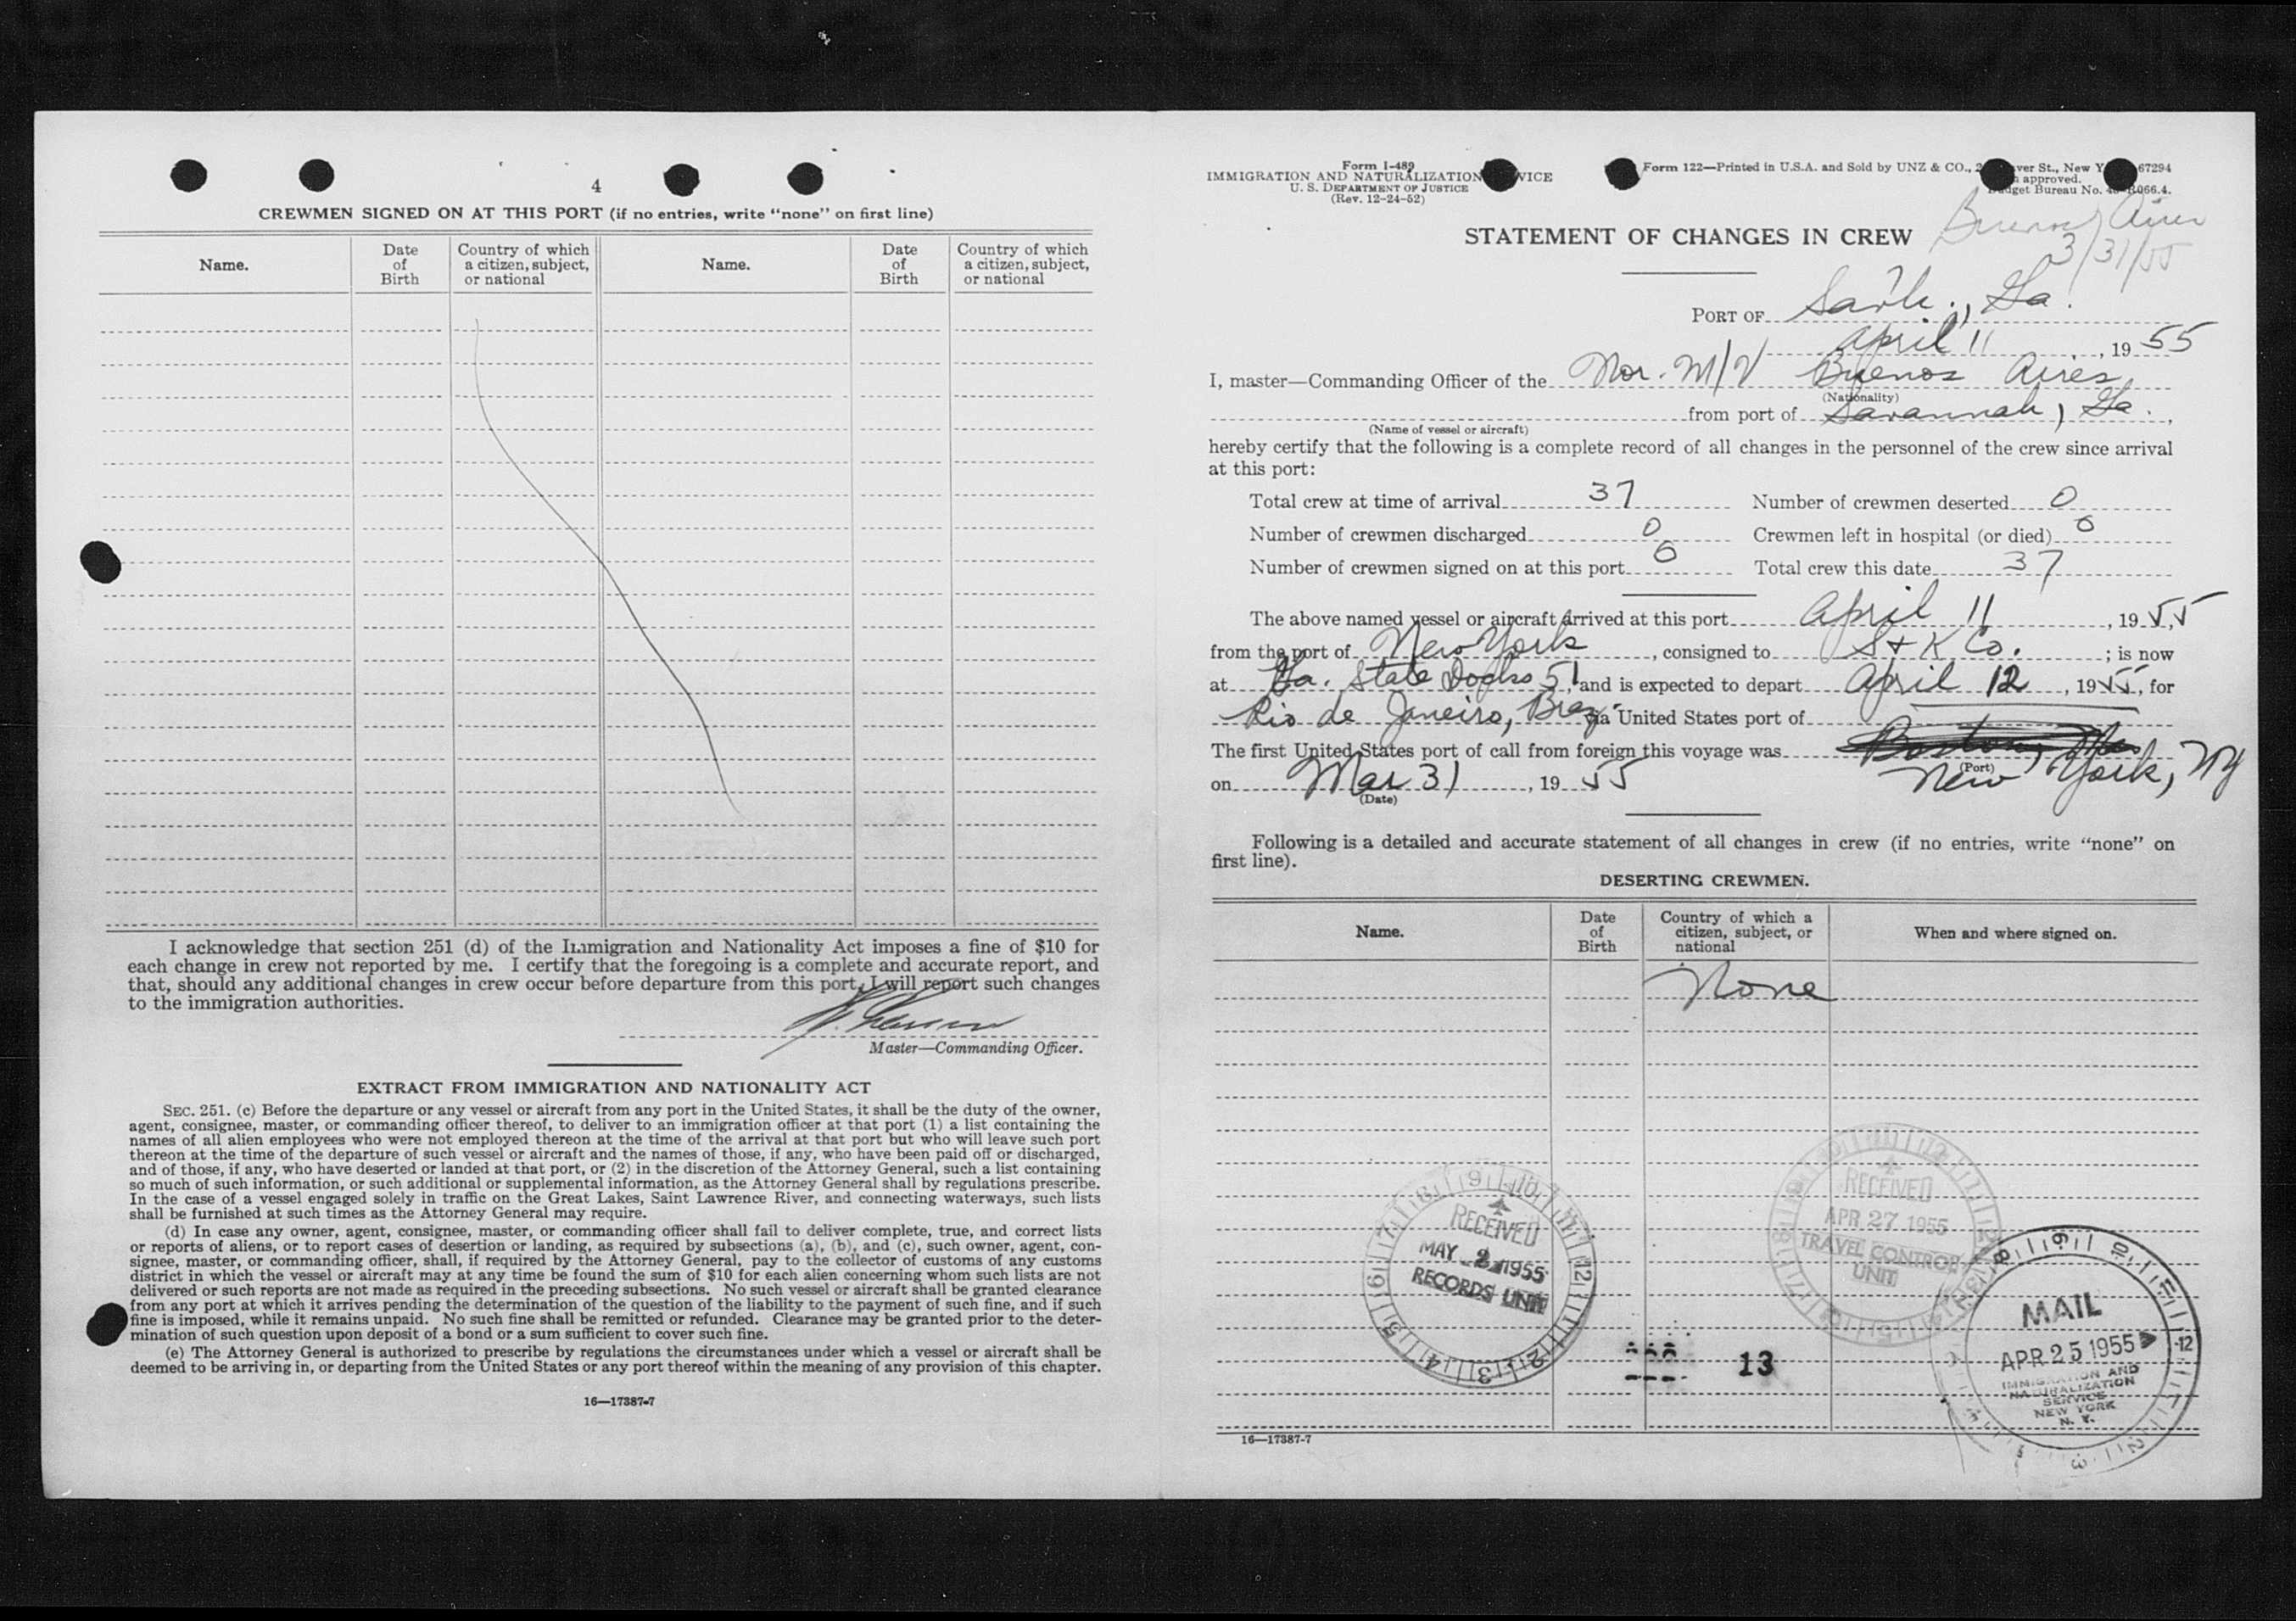 4
CREWMEN SIGNED ON AT THIS PORT (if no entries, write "none" on first line)
Name.
Date of Birth
Country of which a citizen, subject, or national
Name.
Date of Birth
Country of which a citizen, subject, or national
I acknowledge that section 251 (d) of the Immigration and Nationality Act imposes a fine of $10 for
each change in crew not reported by me. I certify that the foregoing is a complete and accurate report, and
that, should any additional changes in crew occur before departure from this port, I will report such changes
to the immigration authorities.
Master—Commanding Officer.
EXTRACT FROM IMMIGRATION AND NATIONALITY ACT
SEC. 251. (c) Before the departure or any vessel or aircraft from any port in the United States, it shall be the duty of the owner,
agent, consignee, master, or commanding officer thereof, to deliver to an immigration officer at that port (1) a list containing the
names of all alien employees who were not employed thereon at the time of the arrival at that port but who will leave such port
thereon at the time of the departure of such vessel or aircraft and the names of those, if any, who have been paid off or discharged,
and of those, if any, who have deserted or landed at that port, or (2) in the discretion of the Attorney General, such a list containing
so much of such information, or such additional or supplemental information, as the Attorney General shall by regulations prescribe.
In the case of a vessel engaged solely in traffic on the Great Lakes, Saint Lawrence River, and connecting waterways, such lists
shall be furnished at such times as the Attorney General may require.
(d) In case any owner, agent, consignee, master, or commanding officer shall fail to deliver complete, true, and correct lists
or reports of aliens, or to report cases of desertion or landing, as required by subsections (a), (b), and (c), such owner, agent, con-
signee, master, or commanding officer, shall, if required by the Attorney General, pay to the collector of customs of any customs
district in which the vessel or aircraft may at any time be found the sum of $10 for each alien concerning whom such lists are not
delivered or such reports are not made as required in the preceding subsections. No such vessel or aircraft shall be granted clearance
from any port at which it arrives pending the determination of the question of the liability to the payment of such fine, and if such
fine is imposed, while it remains unpaid. No such fine shall be remitted or refunded. Clearance may be granted prior to the deter-
mination of such question upon deposit of a bond or a sum sufficient to cover such fine.
(e) The Attorney General is authorized to prescribe by regulations the circumstances under which a vessel or aircraft shall be
deemed to be arriving in, or departing from the United States or any port thereof within the meaning of any provision of this chapter.
16—17387-7
Form I-489
IMMIGRATION AND NATURALIZATION VICE
U. S. DEPARTMENT OF JUSTICE
(Rev. 12-24-52)
Form 122—Printed in U.S.A. and Sold by UNZ & CO., 2 ver St., New Y 67294
approved.
get Bureau No. 066.4.
Buenos Aires
3/31/55
STATEMENT OF CHANGES IN CREW
PORT OF Sav'h., Ga.
April 11, 1955
I, master—Commanding Officer of the Nor. M/V Buenos Aires
(Nationality)
from port of Savannah, Ga.,
(Name of vessel or aircraft)
hereby certify that the following is a complete record of all changes in the personnel of the crew since arrival
at this port:
Total crew at time of arrival 37 Number of crewmen deserted 0
Number of crewmen discharged 0 Crewmen left in hospital (or died) 0
Number of crewmen signed on at this port 0 Total crew this date 37
The above named vessel or aircraft arrived at this port April 11, 1955
from the port of New York, consigned to S + K Co.; is now
at Ga. State Docks 51, and is expected to depart April 12, 1955, for
Rio de Janeiro, Braz. via United States port of
The first United States port of call from foreign this voyage was Boston, Mas
(Port)
New York, NY
on Mar 31, 1955
(Date)
Following is a detailed and accurate statement of all changes in crew (if no entries, write "none" on
first line).
DESERTING CREWMEN.
Name.
Date of Birth
Country of which a citizen, subject, or national
When and where signed on.
None
RECEIVED
MAY 2 1955
RECORDS UNIT
RECEIVED
APR 27 1955
TRAVEL CONTROL
UNIT
MAIL
APR 25 1955
IMMIGRATION AND
NATURALIZATION
SERVICE
NEW YORK
N. Y.
13
16—17387-7